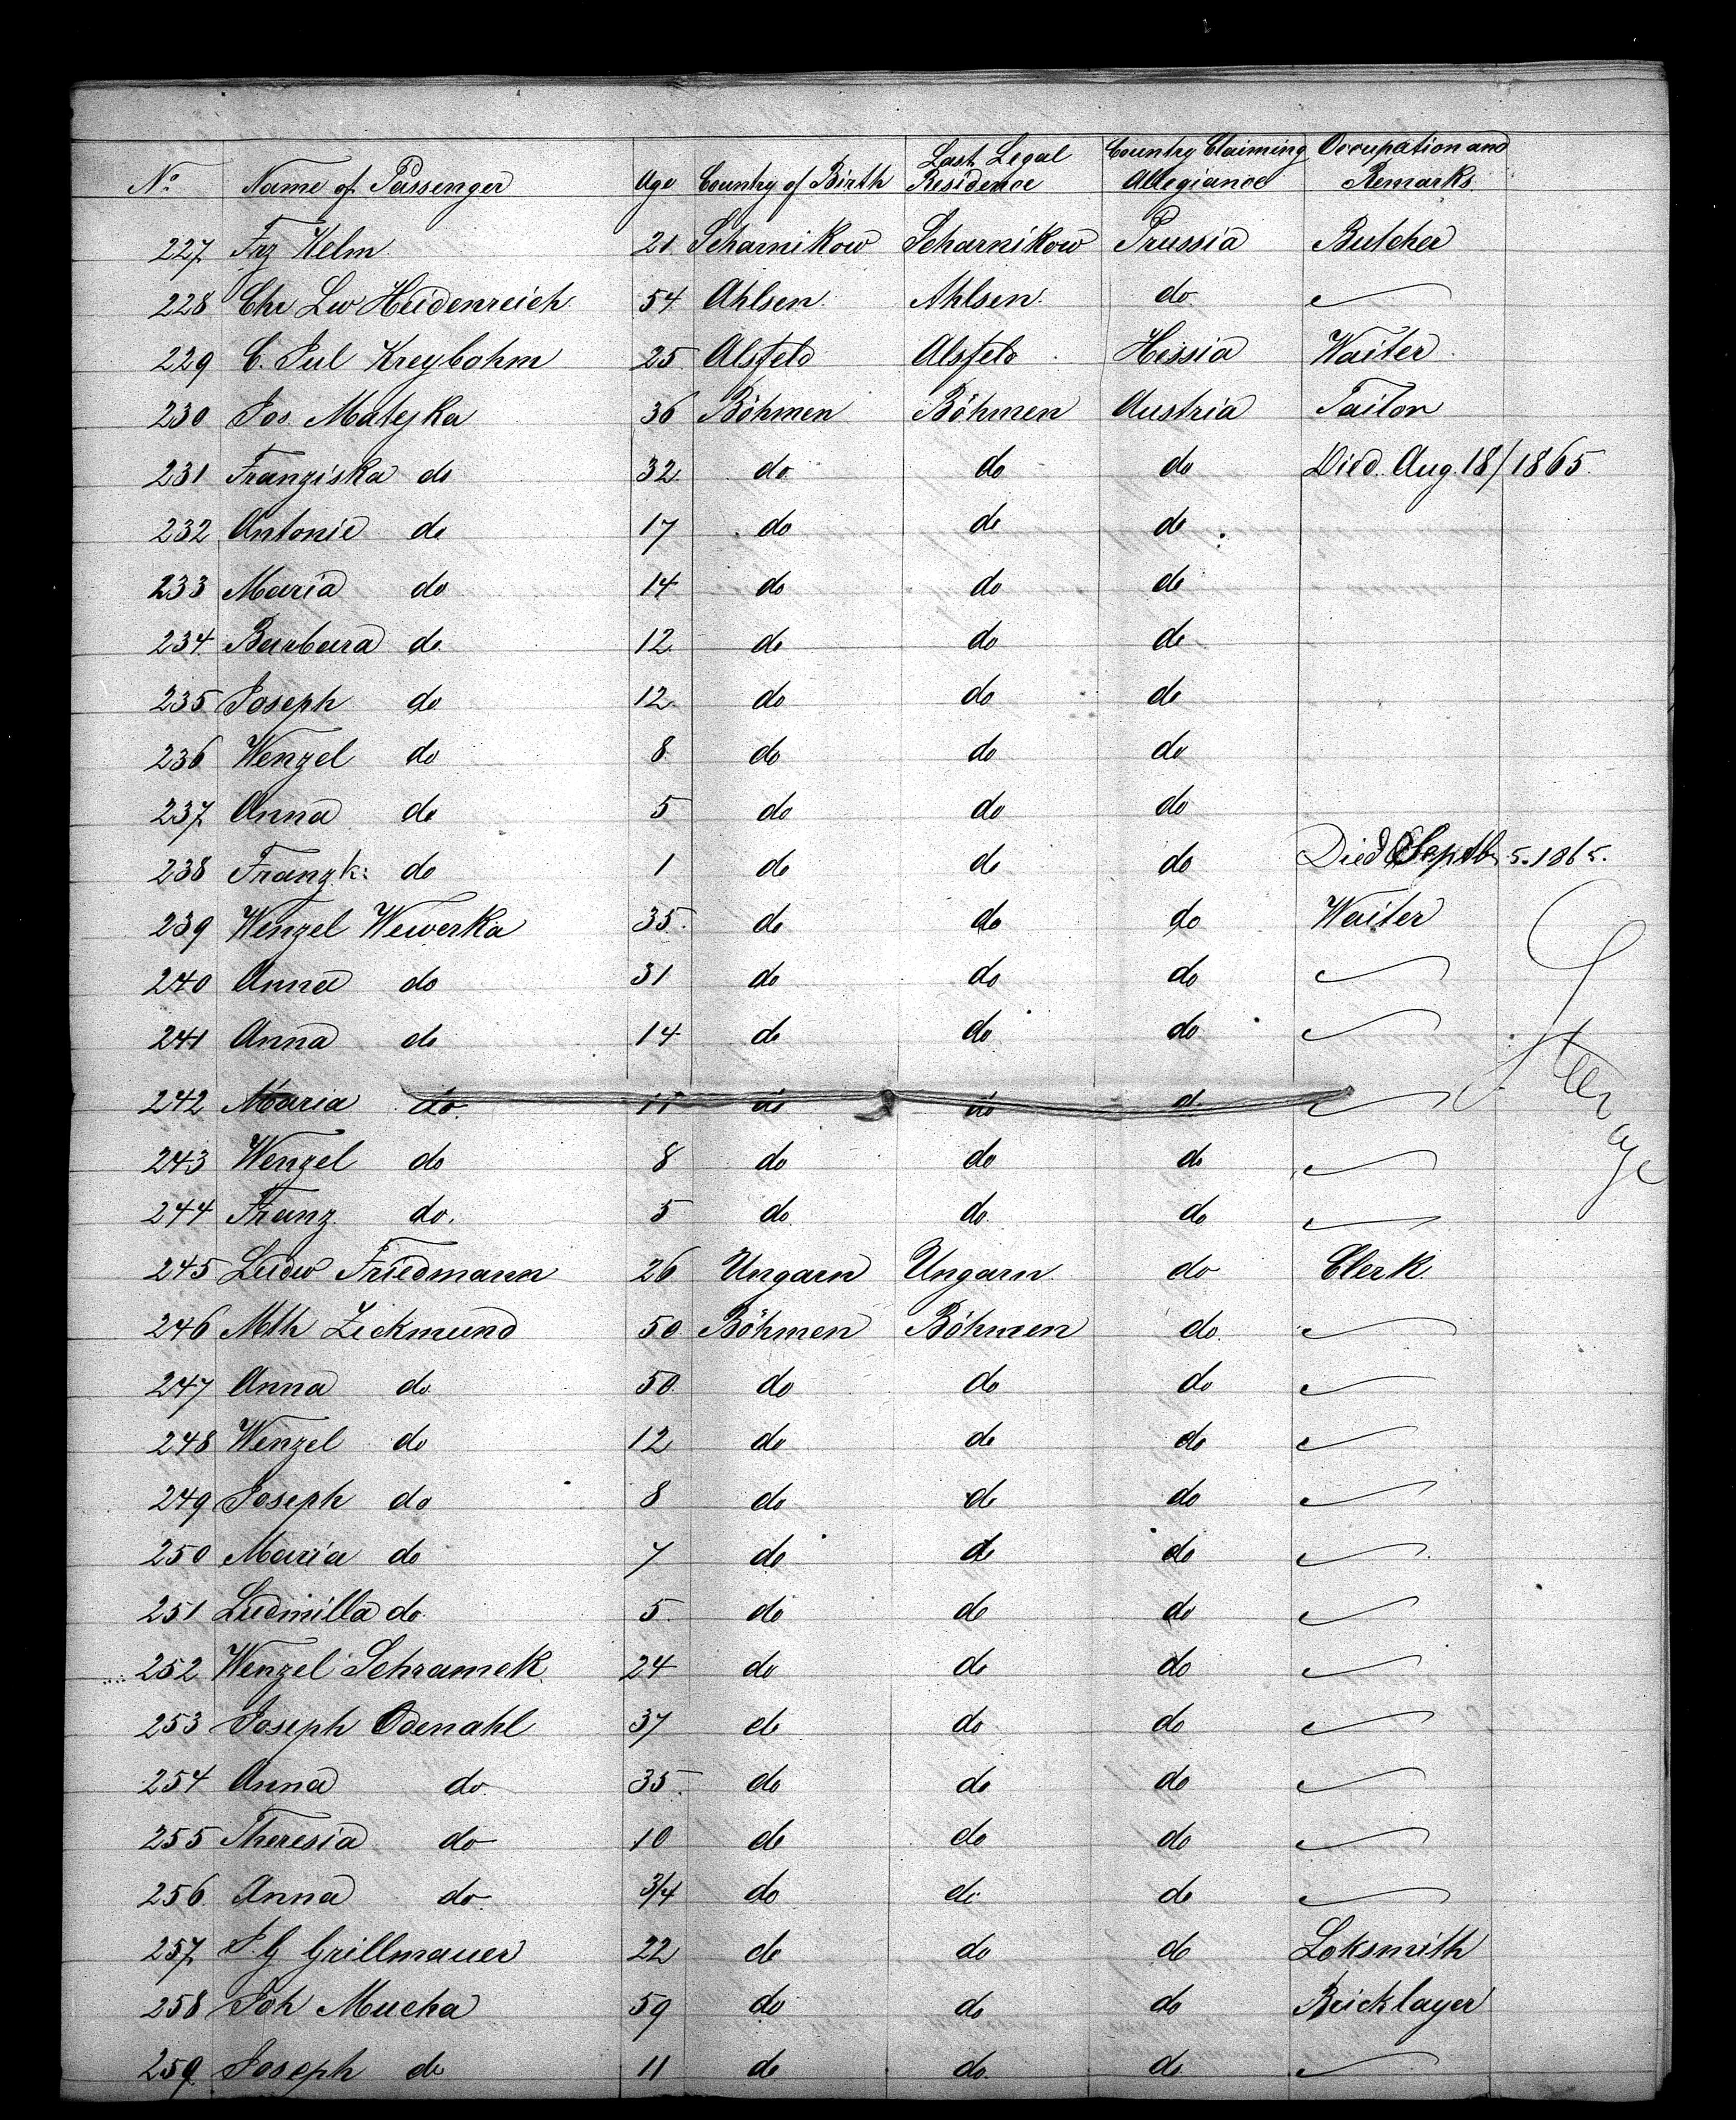 No. Name of Passenger Age Country of Birth Last Legal Residence Country Claiming Allegiance Occupation and Remarks
227 Frz Kelm 21 Scharnikow Scharnikow Prussia Butcher
228 Chr Lw Heidenreich 54 Ahlsen Ahlsen do
229 C. Jul Kreybohm 25 Alsfeld Alsfeld Hessia Waiter
230 Jos. Matejka 36 Böhmen Böhmen Austria Tailor
231 Franziska do 32 do do do Died. Aug. 18/1865.
232 Antonie do 17 do do do
233 Maria do 14 do do do
234 Barbara do 12 do do do
235 Joseph do 12 do do do
236 Wenzel do 8 do do do
237 Anna do 5 do do do
238 Franzk: do 1 do do do Died Septb 5. 1865.
239 Wenzel Wewerka 35 do do do Waiter
240 Anna do 31 do do do
241 Anna do 14 do do do
242 Maria do 11 do do do
243 Wenzel do 8 do do do
244 Franz do. 5 do do do
245 Ludw Friedmann 26 Ungarn Ungarn do Clerk
246 Mth Zickmund 50 Böhmen Böhmen do
247 Anna do 50 do do do
248 Wenzel do 12 do do do
249 Joseph do 8 do do do
250 Maria do 7 do do do
251 Ludmilla do 5 do do do
252 Wenzel Schramek 24 do do do
253 Joseph Odenahl 37 do do do
254 Anna do 35 do do do
255 Theresia do 10 do do do
256 Anna do 3/4 do do do
257 J. G Grillmauer 22 do do do Loksmith
258 Joh Mucha 59 do do do Bricklayer
259 Joseph do 11 do do do
Steerage